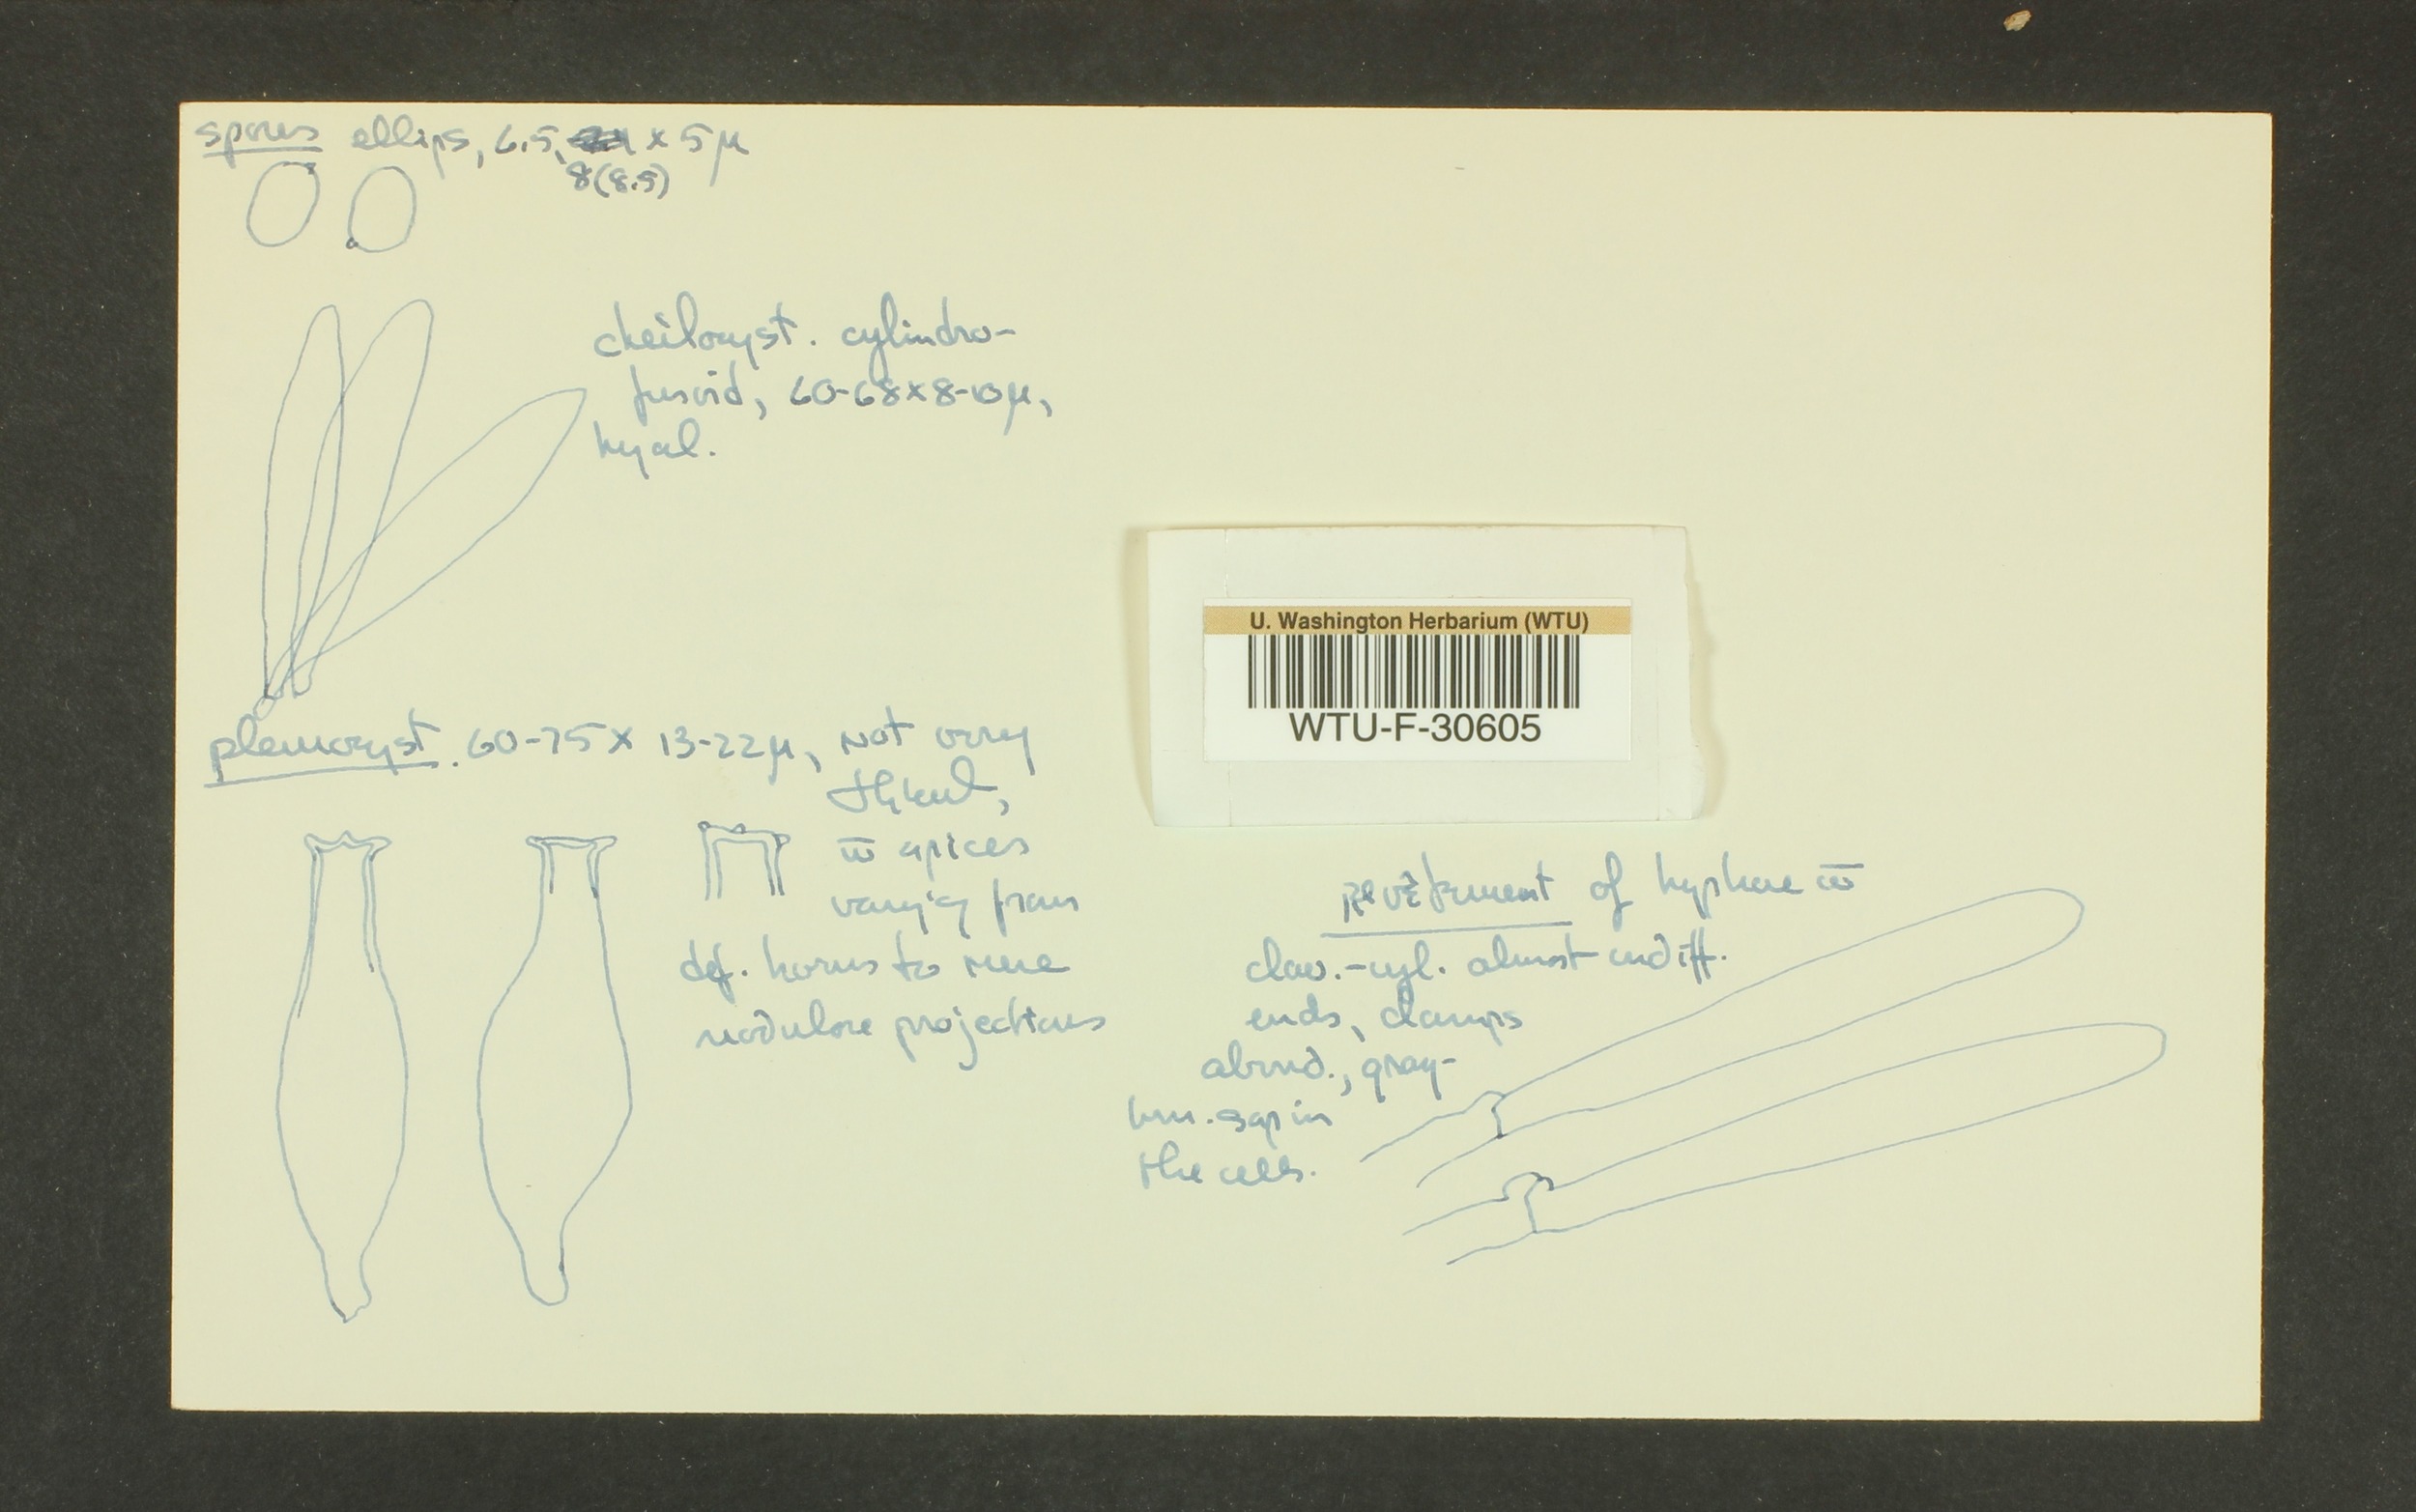 spores ellips, 6.5- x 5 µ
8(8.5)
cheilocyst. cylindro-
fusoid, 60-68x8-10µ,
hyal.
pleurocyst. 60-75 x 13-22µ, not very
thkwd,
w̅ apices
vary'g from
def. horns to mere
nodulose projections
U. Washington Herbarium (WTU)
WTU-F-30605
Revêtement of hyphae w̅
clav.-cyl. almost undiff.
ends, clamps
abund., gray-
brn. sap in
the cells.